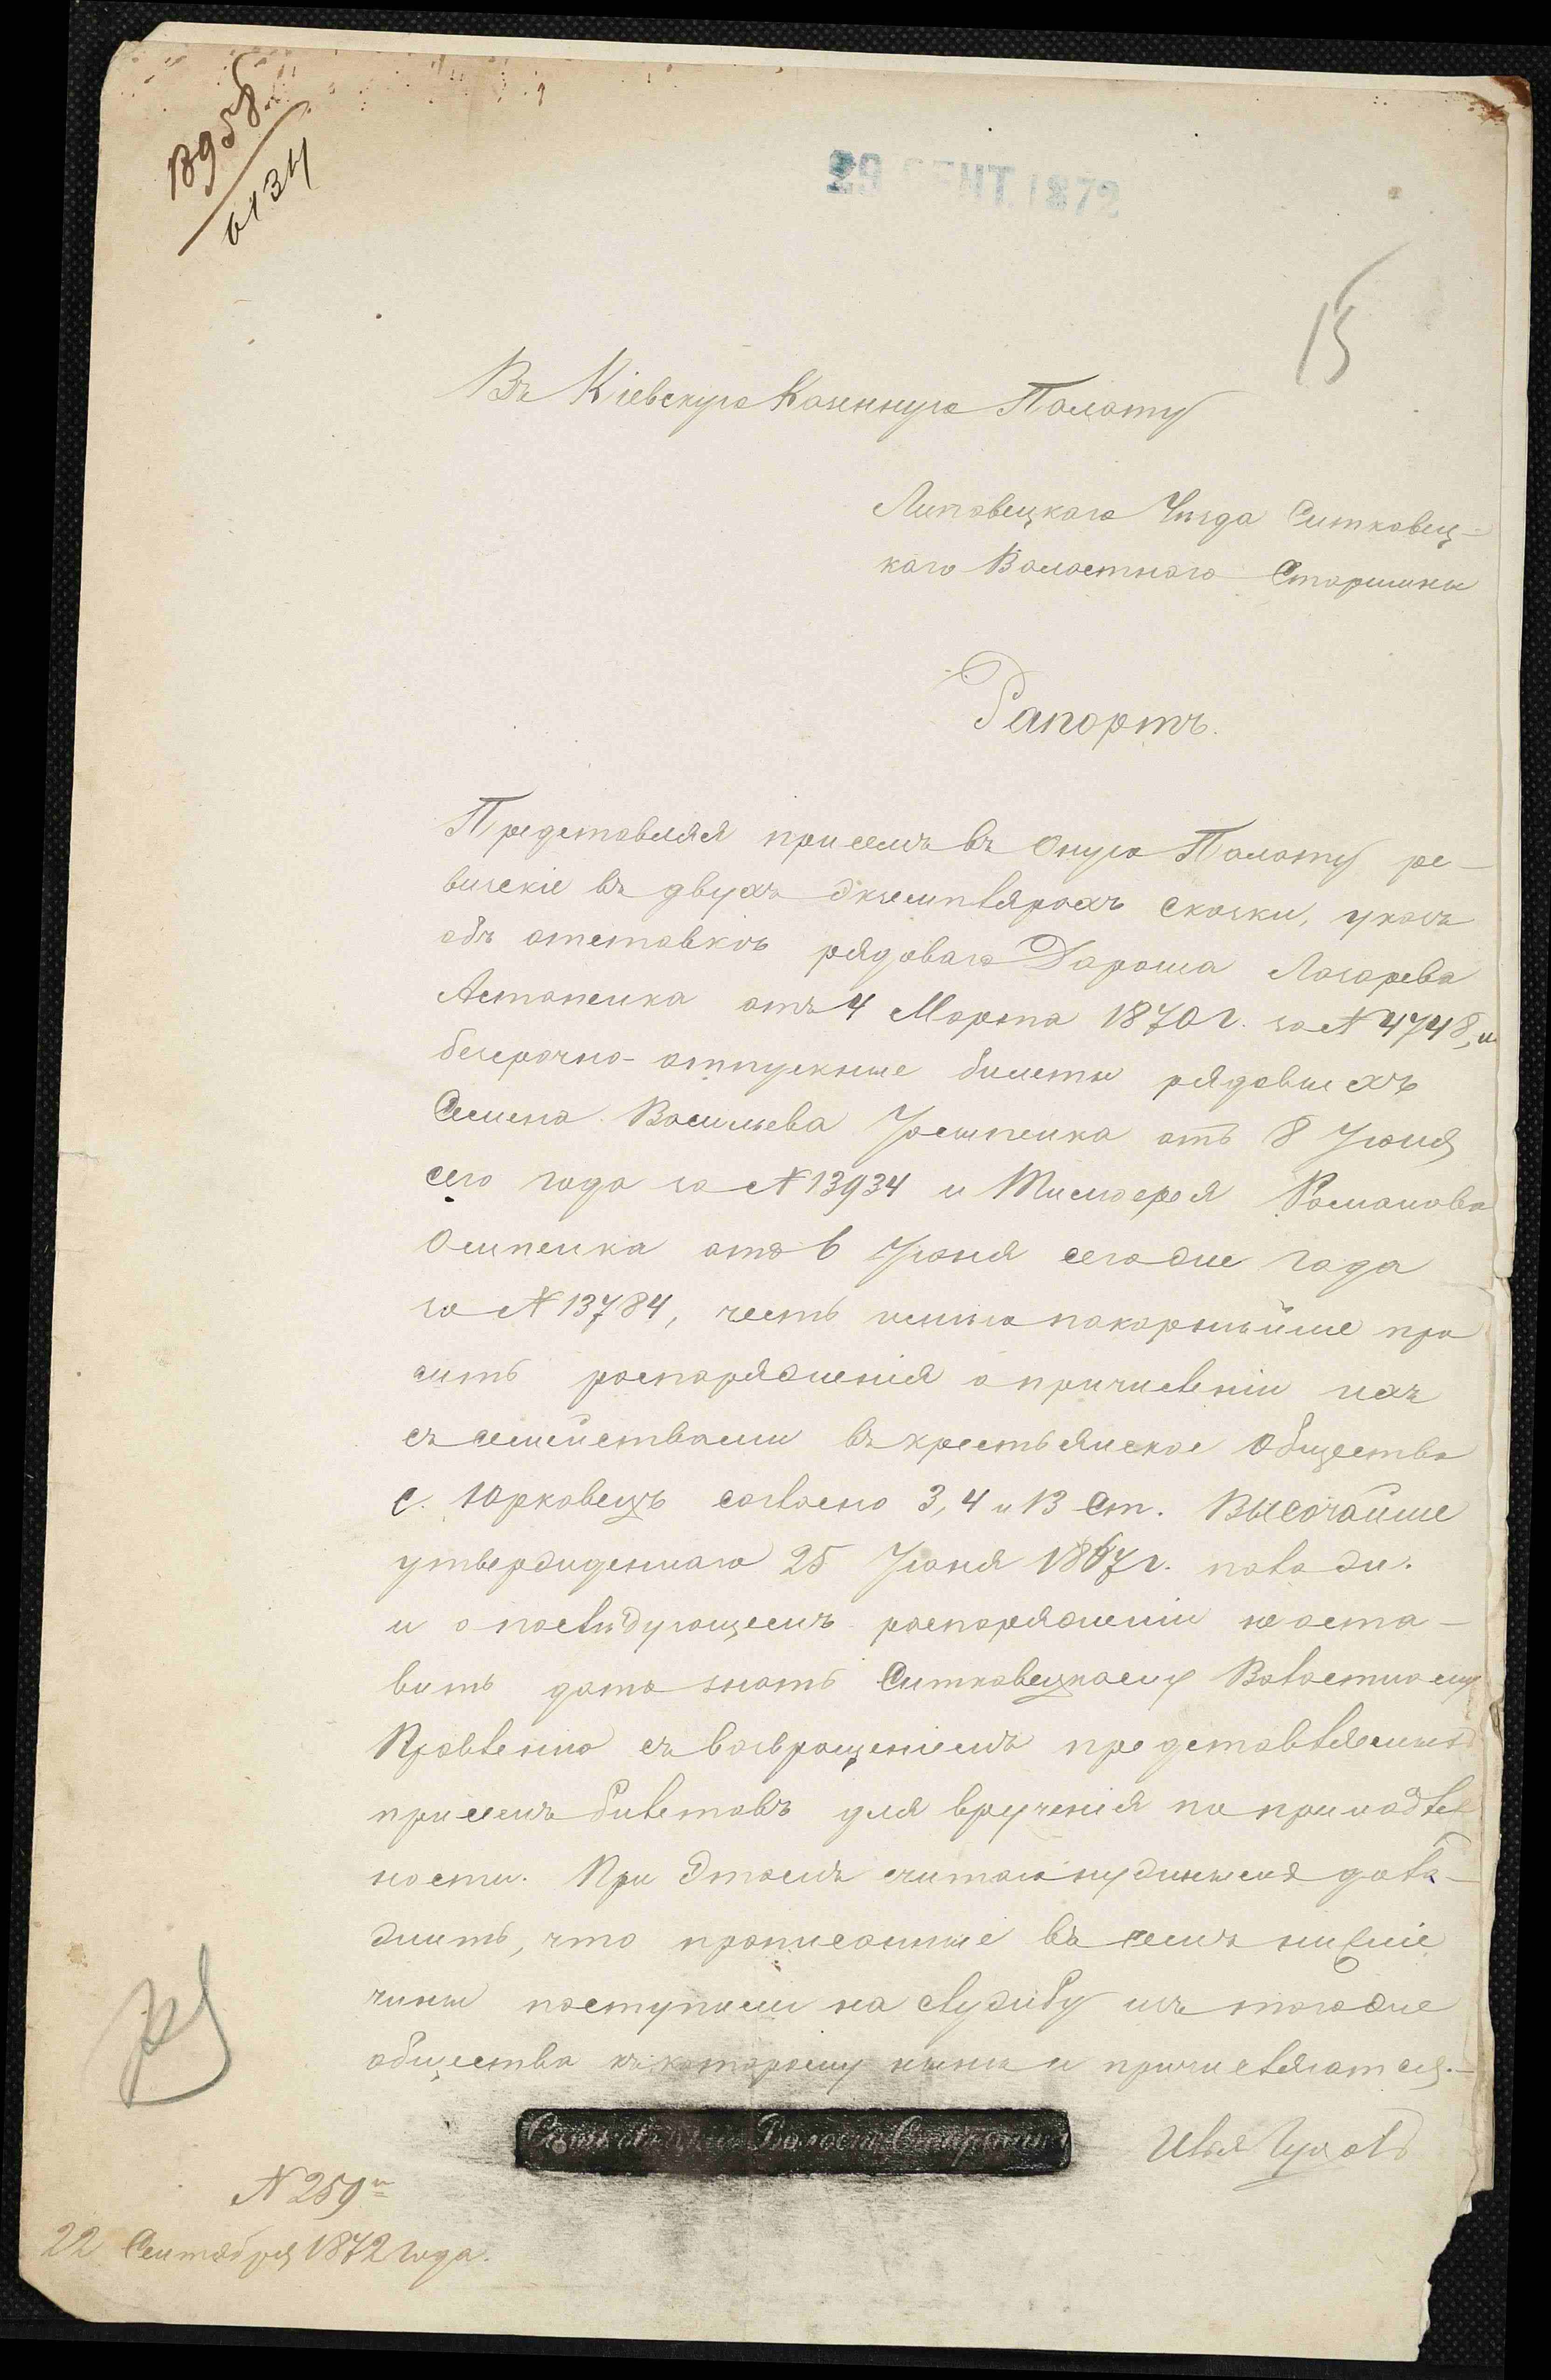 В958
6134
29 СЕНТ. 1872
15
Въ Кіевскую Казенную Палату
Липовецкаго Уѣзда Ситковец-
каго Волостнаго Старшины
Рапортъ.
Представляя при семъ въ оную Палату ре-
визскіе въ двухъ экземплярахъ сказки, указъ
объ отставкѣ рядоваго Лазарева
отъ 4 Марта 1870 г. за № 4748, и
безсрочно-отпускные билеты рядовыхъ
Семена Васильева отъ 8 Іюня
сего года за № 13934 и Тимофея Романова
Осипенка отъ 6 Іюня сего же года
за № 13784, честь имѣю покорнѣйше про
сить распоряженія о причисленіи ихъ
съ семействами въ крестьянское общество
с. Юрковецъ согласно 3, 4 и 13 ст. Высочайше
утвержденнаго 25 Іюня 1867 г. полож.
и о послѣдующемъ распоряженіи не оста-
вить дать знать Ситковецкому Волостному
Правленію съ возвращеніемъ представляемыхъ
при семъ билетовъ для врученія по принадлеж
ности. При этомъ считаю нужнымъ доло-
жить, что прописанные въ семъ нижніе
чины поступили на службу изъ того же
общества къ которому нынѣ и причисляются.-
Ситковецкій Волостн. Старшина
Илья
№ 259
22 Сентября 1872 года.